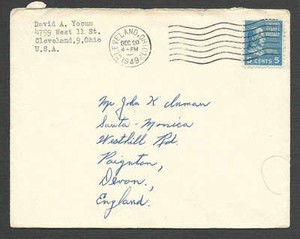 David A. Yosum
4759 West 11 St.
Cleveland,9,Ohio
U.S.A.
CLEVELAND, OHIO
DEC 29
4-PM
1949
5 CENTS 5
Mr John H Inman
Santa-Monica
Westhill Rd.
Paignton,
Devon,
England.